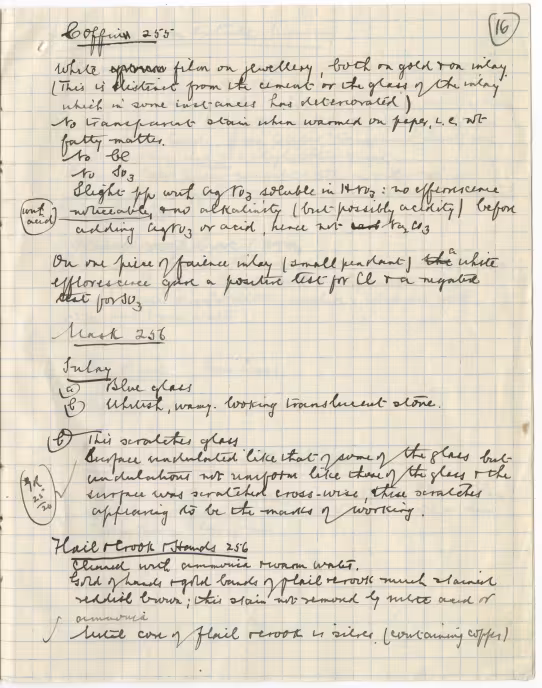 16
Coffin 255
White film on jewellery, both on gold & on inlay
(This is distinct from the cement or the glass of the inlay
which in some instances has deteriorated)
No transparent stain when warmed on paper, i.e. not
fatty matter.
No Cl
No SO3
Slight pp with AgNO3 soluble in HNO3: no efflorescence
with acid
noticeable, & no alkalinity (but possibly acidity) before
adding AgNO3 or acid, hence not Na2CO3
On one piece of faience inlay (small pendant) the a white
efflorescence gave a positive test for Cl & a negative
test for SO3
Mask 256
Inlay
(a) Blue glass
(b) Whitish, waxy-looking translucent stone.
(b) This scratches glass
Surface undulated like that of some of the glass but
undulations not uniform like those of the glass & the
surface was scratched cross-wise, these scratches
appearing to be the marks of working.
Flail & Crook & Hands 256
Cleaned with ammonia & warm water.
Gold of hands & gold bands of flail & crook much stained
reddish brown; this stain not removed by acid or
ammonia
Metal core of flail & crook is silver (containing copper)